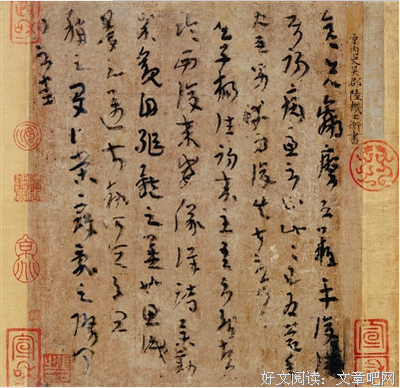 内史吳郡陸機士衡書
彥先羸瘵恐難平復往屬
初病慮不止此此已為慶承使
唯男幸為復失前憂耳吳
子楊往初來主吾不能盡
臨西復來威儀詳跱舉動
成觀自軀體之美也思識
量之邁前執所恒有宜
稱之夏伯榮寇亂之際聞
問不悉
宣和
好文阅读:文章吧网